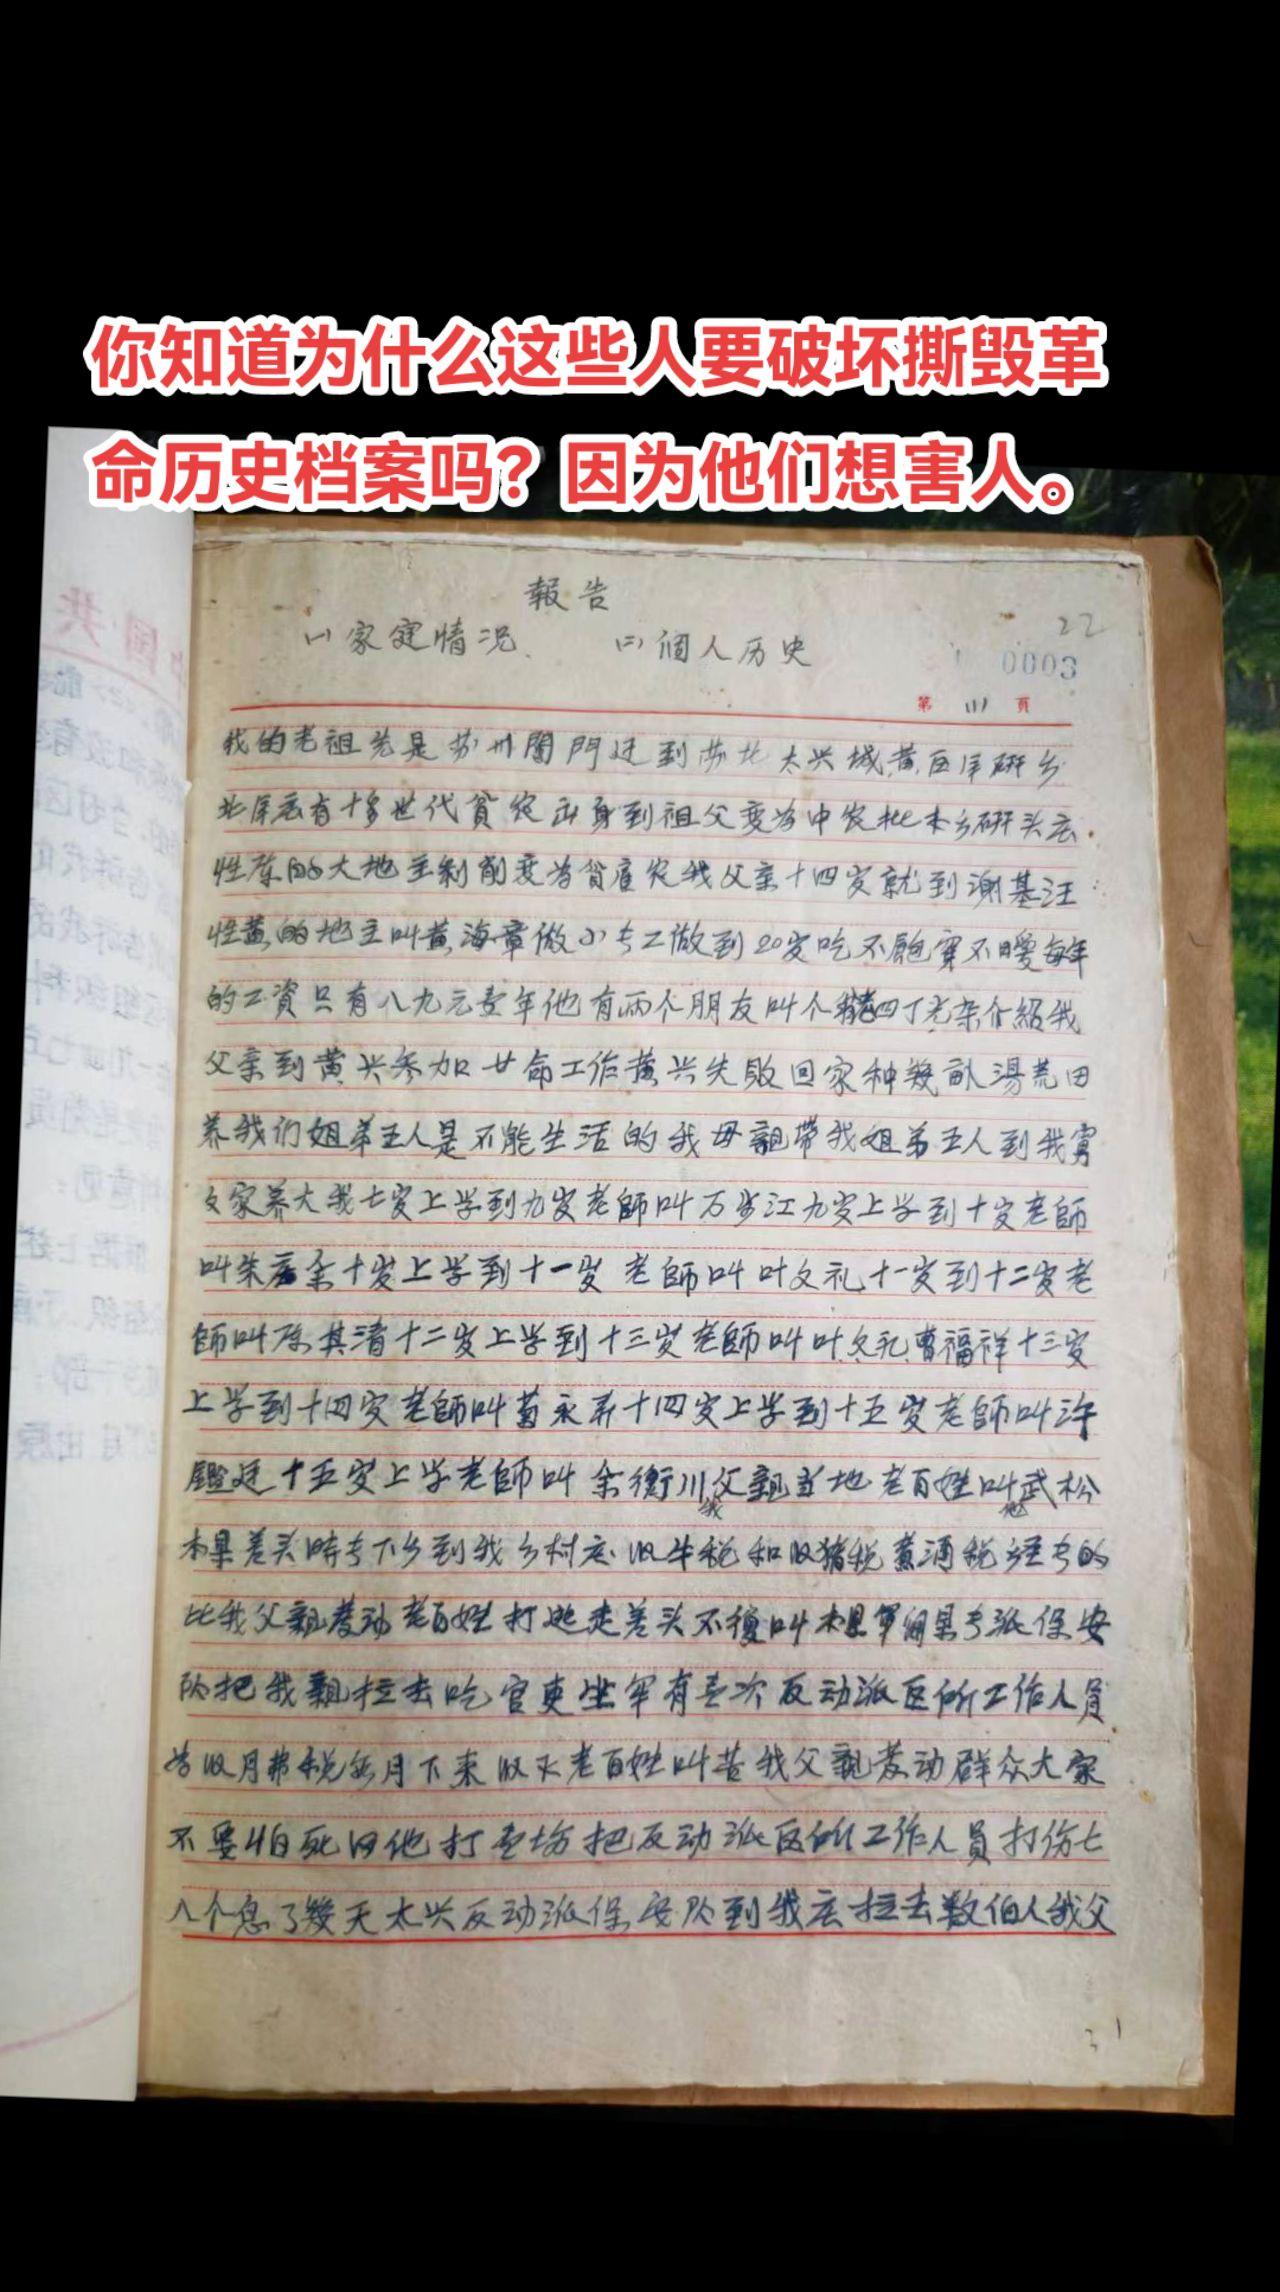 你知道为什么这些人要破坏撕毁革
命历史档案吗？因为他们想害人。
報告
(一)家定情况、 (二)個人历史
22
0003
第 (1) 頁
我的老祖先是苏州閶門迁到苏北太兴城黄区岸研乡
北岸庄有十多世代貧农出身到祖父变为中农批本乡研头庄
性陈的大地主剥削变为貧雇农我父亲十四岁就到謝基汪
性黄的地主叫黄海章做小专工做到20岁吃不飽穿不暖每年
的工資只有八九元壹年他有兩个朋友叫个 四丁老杂介紹我
父亲到黄兴参加廿命工作黄兴失敗回家种幾畝湯荒田
养我们姐弟五人是不能生活的我母親带我姐弟五人到我寅
父家养大我七岁上学到九岁老師叫万步江九岁上学到十岁老師
叫朱 十岁上学到十一岁老師叫叶文礼十一岁到十二岁老
師叫陈其清十二岁上学到十三岁老師叫叶文礼曹福祥十三岁
上学到十四岁老師叫葛永弄十四岁上学到十五岁老師叫许
鑑廷十五岁上学老師叫余衡川我父親当地老百姓叫他武松
本果差头時专下乡到我乡村庄收牛税和收猪税黄酒税 的
比我父親發动老百姓打跑走差头不復叫 专派保安
队把我親拉去吃官吏坐牢有壹次反动派区所工作人員
为收月费税每月下来收欠老百姓叫苦我父親发动群众大家
不要怕死田他打壹场把反动派区所工作人員打伤七
八个息了幾天太兴反动派保安队到我庄拉去数佰人我父
31